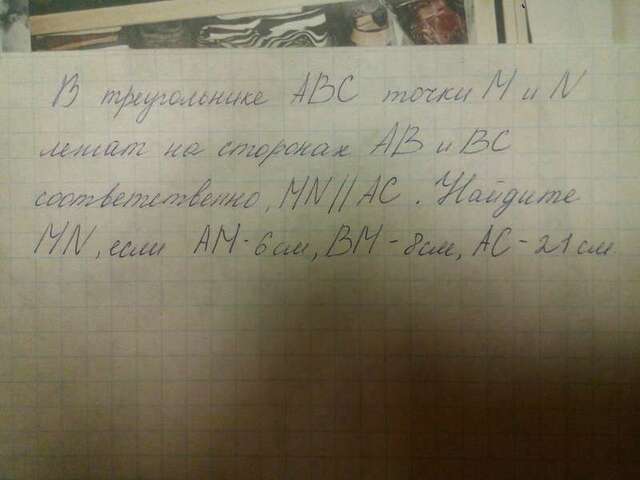 В треугольнике ABC точки M и N
лежат на сторонах AB и BC
соответственно, MN || AC. Найдите
MN, если AM-6см, BM-8см, AC-21см